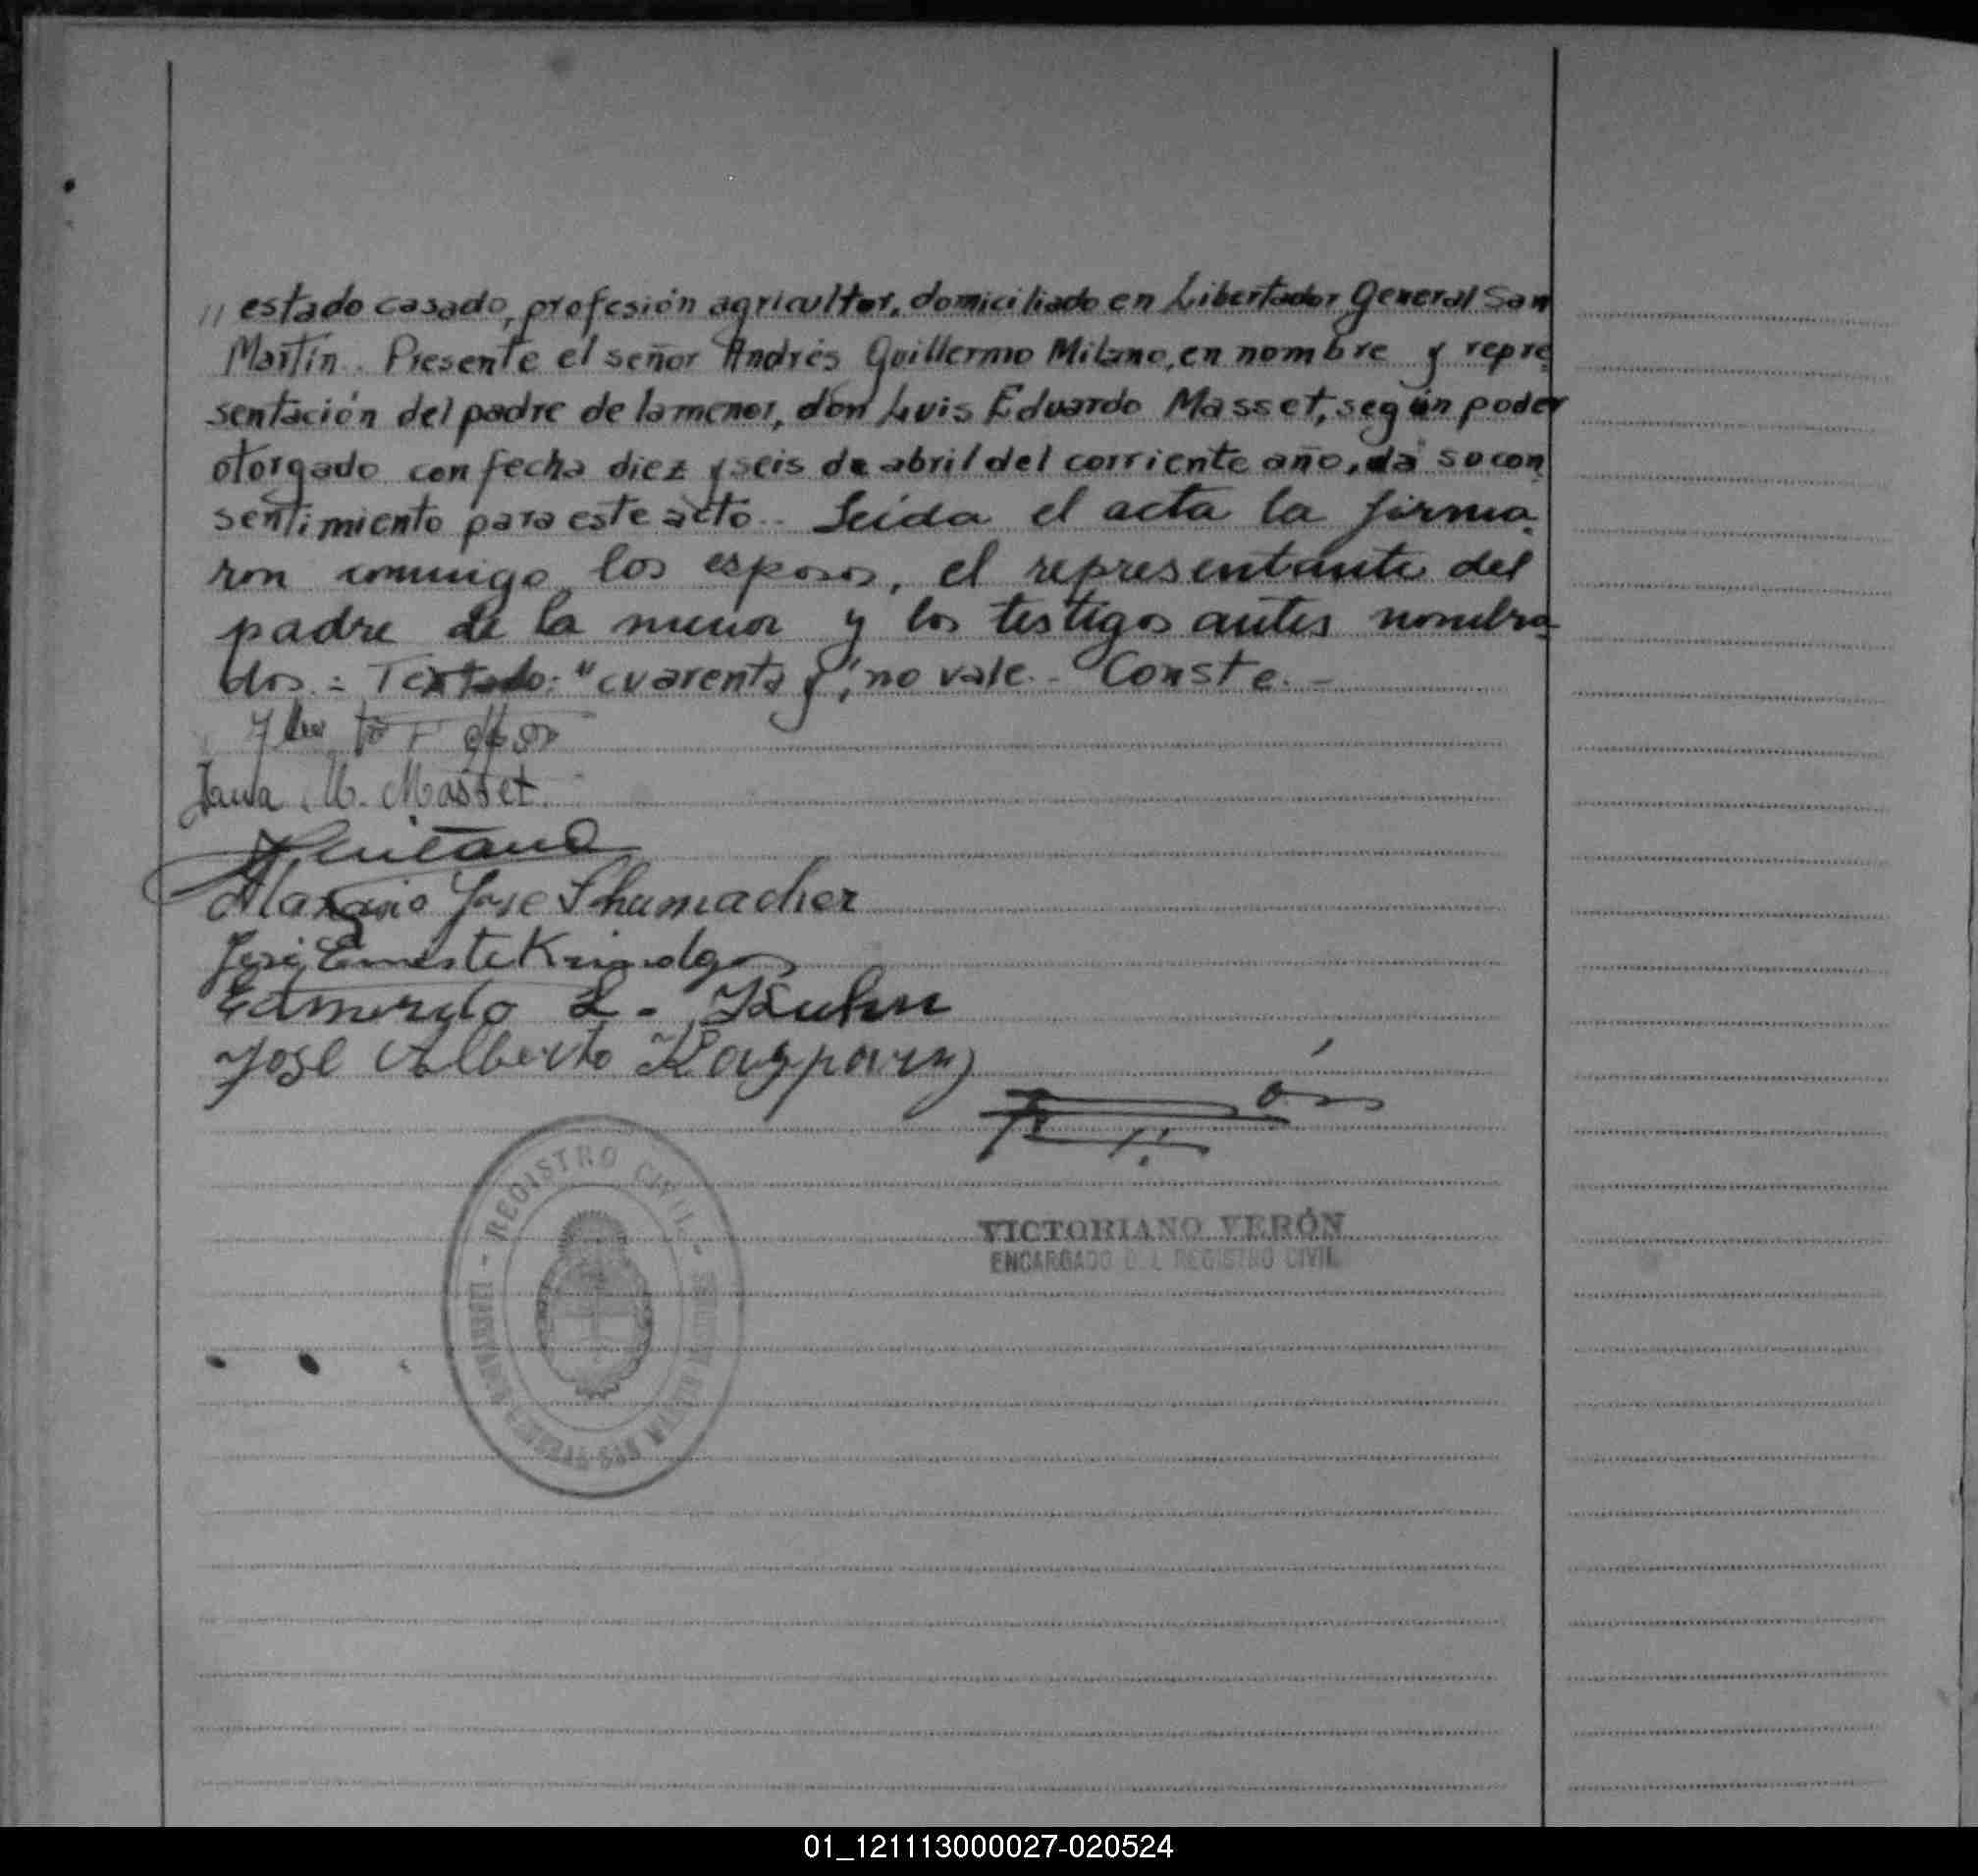 // estado casado, profesión agricultor, domiciliado en Libertador General San
Martín. Presente el señor Andrés Guillermo Milano, en nombre y repre
sentación del padre de la menor, don Luis Eduardo Masset, según poder
otorgado con fecha diez y seis de abril del corriente año, da su con
sentimiento para este acto.- Leida el acta la firma
ron conmigo los esposos, el representante del
padre de la menor y los testigos antes nombra
dos = Textado: "cuarenta y", no vale.- Conste.-
M. Masset.
Milano
Mariano José Shumacher
José Ernesto
Edmundo L. Kuhn
José Alberto
REGISTRO CIVIL
VICTORIANO VERÓN
ENCARGADO DEL REGISTRO CIVIL
01_121113000027-020524